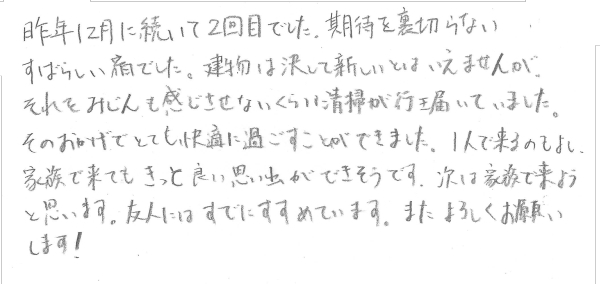 昨年12月に続いて2回目でした。期待を裏切らない
すばらしい宿でした。建物は決して新しいとはいえませんが、
それをみじんも感じさせないくらい清掃が行き届いていました。
そのおかげでとても快適に過ごすことができました。1人で来るのもよし、
家族で来てもきっと良い思い出ができそうです。次は家族で来よう
と思います。友人にはすでにすすめています。またよろしくお願い
します!